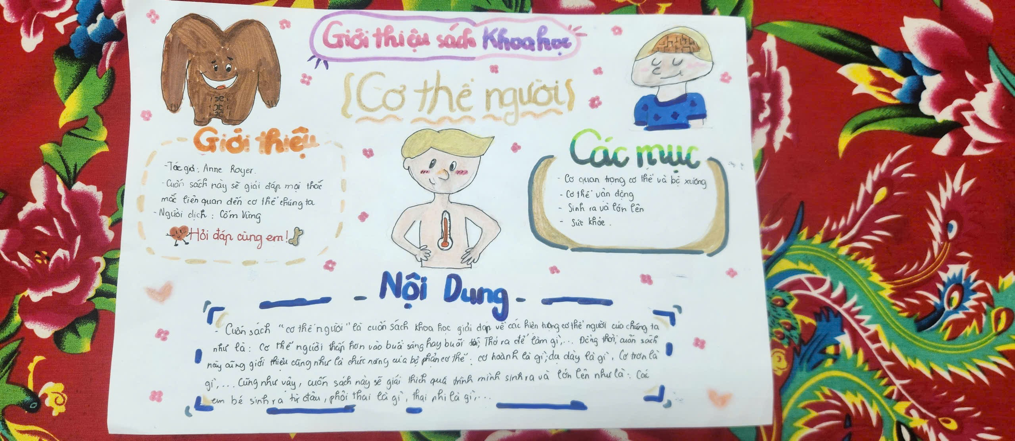 Giới thiệu sách Khoa học
Cơ thể người
Giới thiệu
- Tác giả: Anne Royer
- Cuốn sách này sẽ giải đáp mọi thắc
mắc liên quan đến cơ thể chúng ta
- Người dịch: Cốm Vàng
Hỏi đáp cùng em!
Các mục
- Cơ quan trong cơ thể và bộ xương
- Cơ thể vận động
- Sinh ra và lớn lên
- Sức khỏe.
- Nội Dung -
- Cuốn sách "cơ thể người" là cuốn sách khoa học giải đáp về các hiện tượng cơ thể người của chúng ta
như là: cơ thể người thấp hơn vào buổi sáng hay buổi tối; Thở ra để làm gì,... Đồng thời, cuốn sách
này cũng giới thiệu cũng như là chức năng của bộ phận cơ thể: cơ hoành là gì; dạ dày là gì, cơ trơn là
gì,... Cũng như vậy, cuốn sách này sẽ giải thích quá trình mình sinh ra và lớn lên như là: Các
em bé sinh ra từ đâu, phôi thai là gì, thai nhi là gì,...